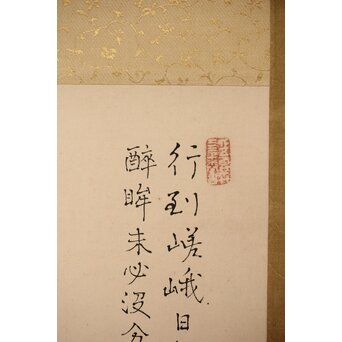 行到嵯峨日
醉眸未必没分